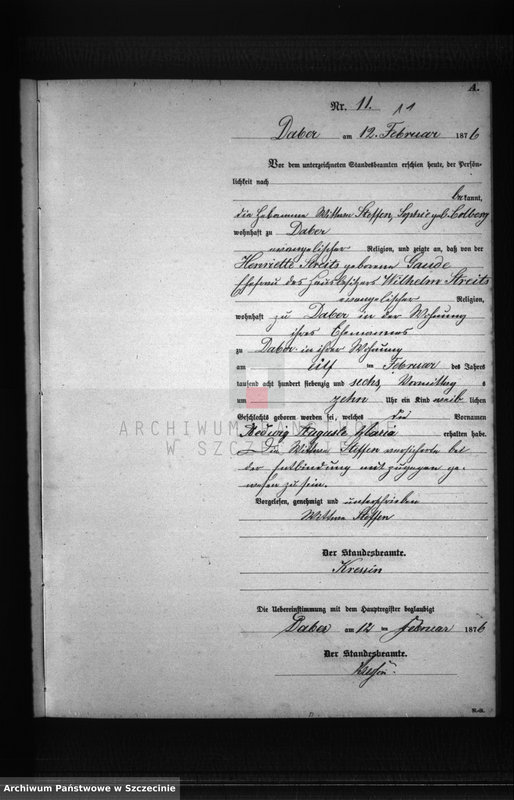 A.
Nr. 11. 11
Daber am 12. Februar 1876
Vor dem unterzeichneten Standesbeamten erschien heute, der Persön-
lichkeit nach
bekannt,
die Hebamme Wittwe Steffen, Sophie geb. Colberg
wohnhaft zu Daber
evangelischer Religion, und zeigte an, daß von der
Henriette Streits geborene Gaude
Ehefrau des Hausbesitzers Wilhelm Streits
evangelischer Religion,
wohnhaft zu Daber in der Wohnung
ihres Ehemannes
zu Daber in ihrer Wohnung
am elf ten Februar des Jahres
tausend acht hundert siebenzig und sechs, Vormittag s
um zehn Uhr ein Kind weib lichen
Geschlechts geboren worden sei, welches die Vornamen
Hedwig Auguste Maria erhalten habe.
Die Wittwe Steffen versicherte bei
der Entbindung mit zugegen ge-
wesen zu sein.
Vorgelesen, genehmigt und unterschrieben
Wittwe Steffen
Der Standesbeamte.
Kressin
Die Uebereinstimmung mit dem Hauptregister beglaubigt
Daber am 12 ten Februar 1876
Der Standesbeamte.
Kressin.
ARCHIWUM PAŃSTWOWE
W SZCZECINIE
Archiwum Państwowe w Szczecinie